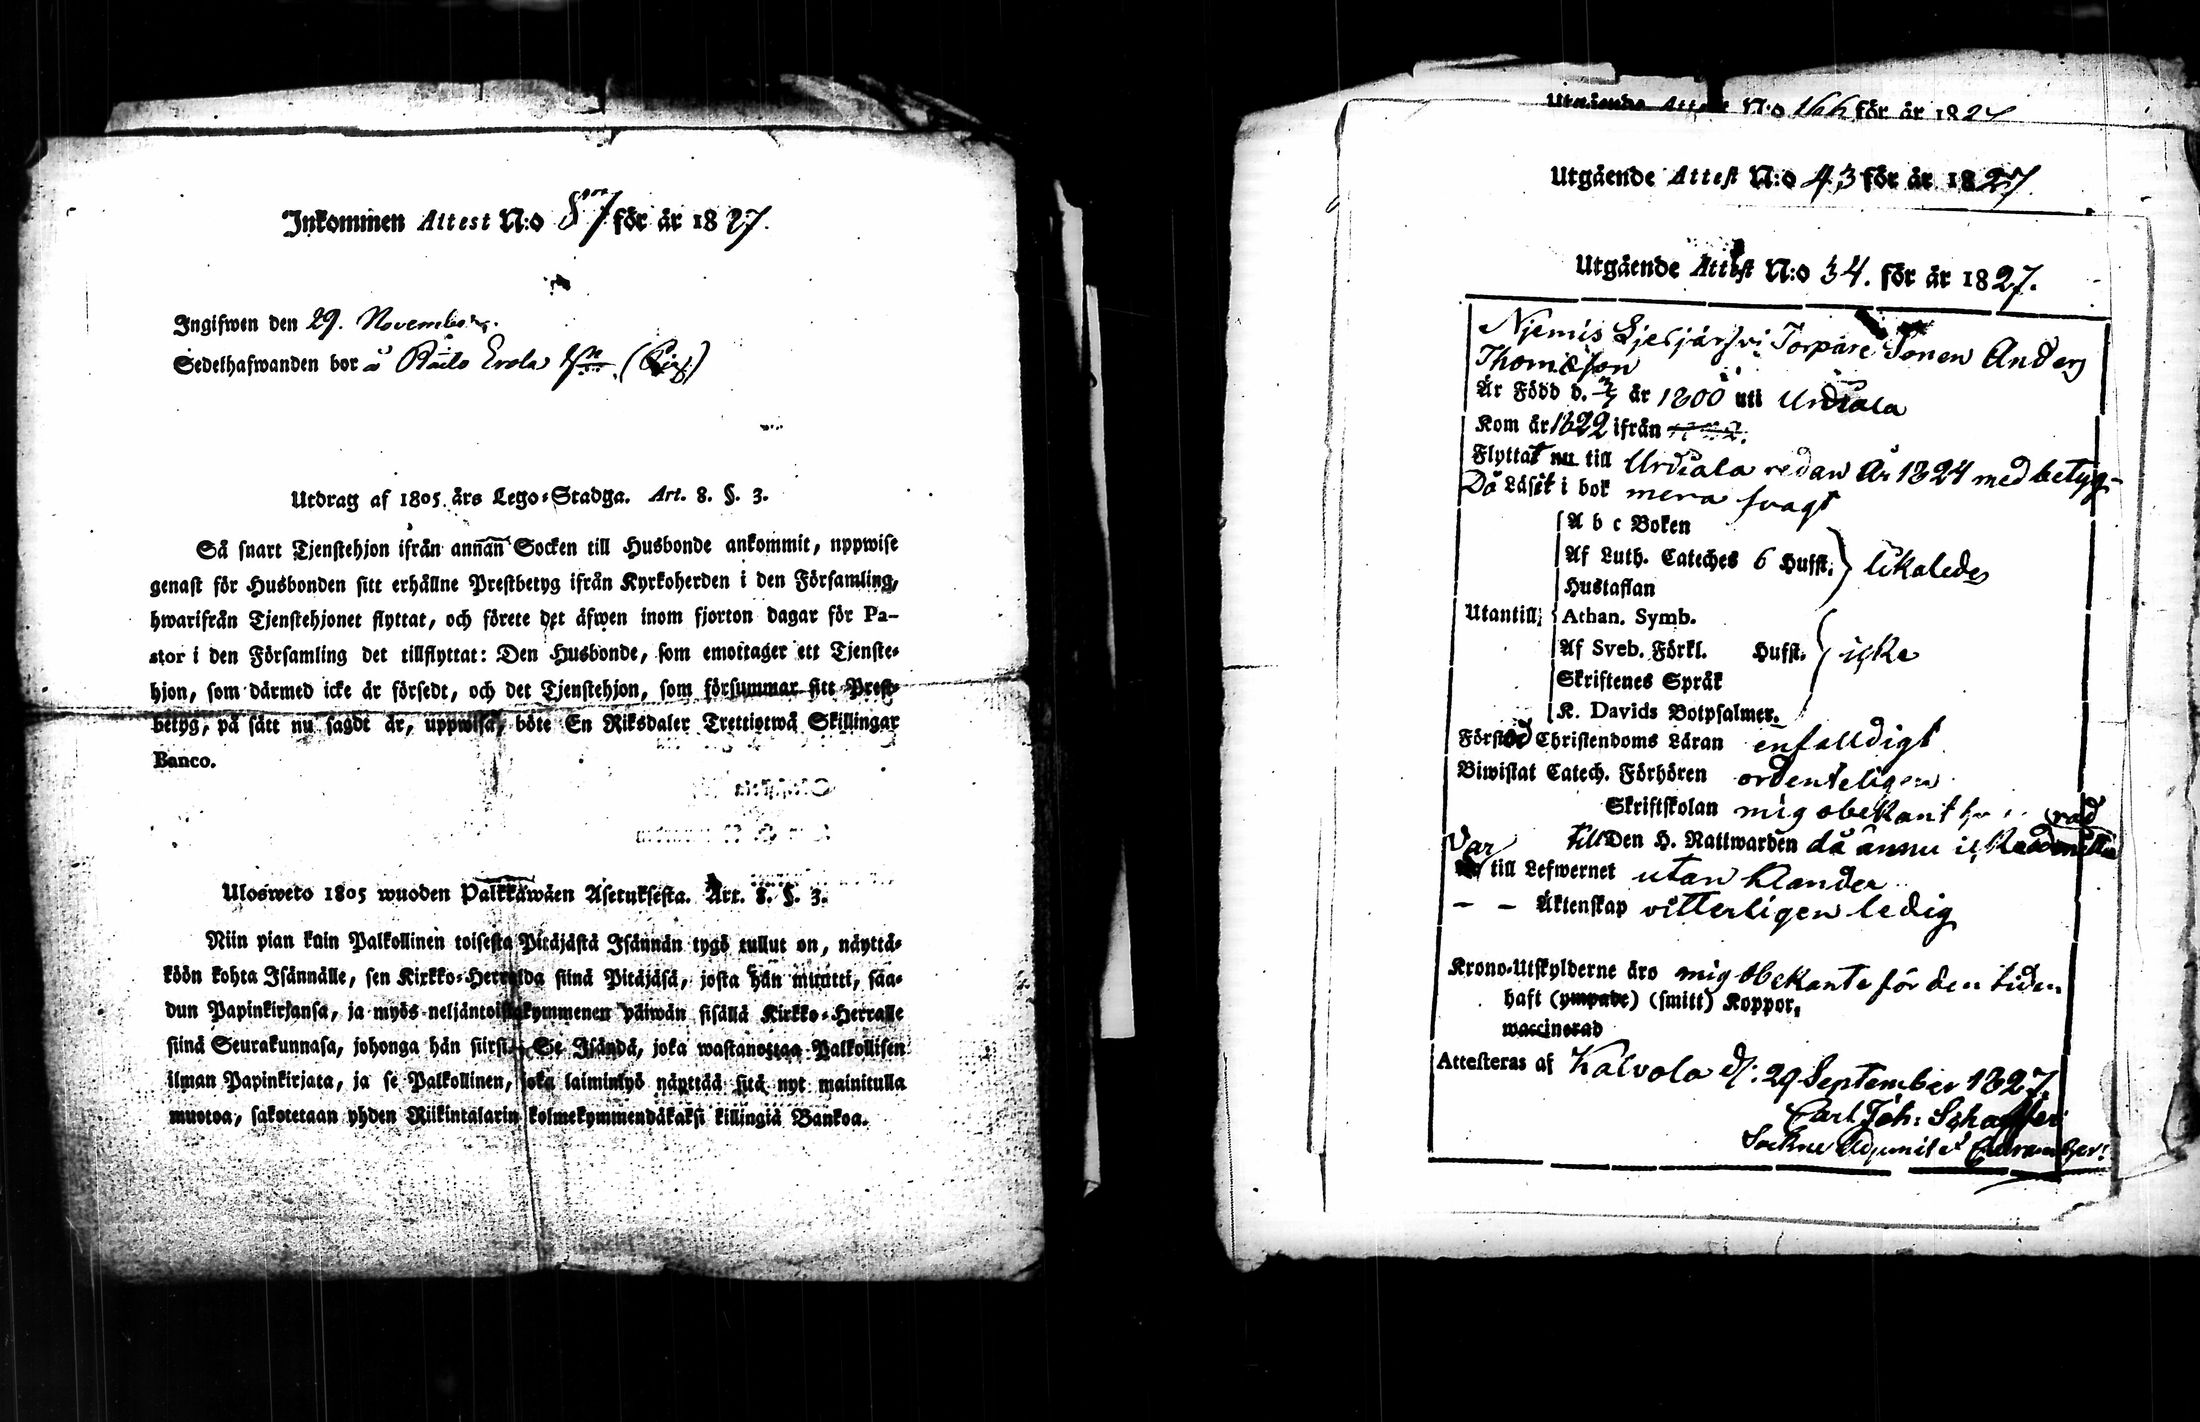 Inkommen Attest N:o 87 för år 1827.
Ingifwen den 29. November.
Sedelhafwanden bor å Rauto Erola
Utdrag af 1805 års Lego-Stadga. Art. 8. §. 3.
Så snart Tjenstehjon ifrån annan Socken till Husbonde ankommit, uppwise
genast för Husbonden sitt erhållne Prestbetyg ifrån Kyrkoherden i den Församling,
hwarifrån Tjenstehjonet flyttat, och förete det äfwen inom fjorton dagar för Pa-
stor i den Församling det tillflyttat: Den Husbonde, som emottager ett Tjenste-
hjon, som därmed icke är försedt, och det Tjenstehjon, som försummar sitt Prest-
betyg, på sätt nu sagdt är, uppwisa, böte En Riksdaler Trettiotwå Skillingar
Banco.
Ulosweto 1805 wuoden Palkkawäen Asetuksesta. Art. 8. §. 3.
Niin pian kuin Palkollinen toisesta Pitäjästä Isännän tygö tullut on, näyttä-
köön kohta Isännälle, sen Kirkko-Herralda siinä Pitäjäsä, josta hän muutti, saa-
dun Papinkirjansa, ja myös neljäntoistakymmenen päiwän sisällä Kirkko-Herralle
siinä Seurakunnasa, johonga hän siirsi. Se Isändä, joka wastanottaa Palkollisen
ilman Papinkirjata, ja se Palkollinen, joka laiminlyö näyttää sitä nyt mainitulla
muotoa, sakotetaan yhden Riikintalarin kolmekymmendäkaksi killingiä Bankoa.
Utgående Attest N:o 166 för år 1827
Utgående Attest N:o 43 för år 1827.
Utgående Attest N:o 34. för år 1827.
Njemis Ljesjärfvi Torpare Sonen Anders
Thomasson
Är Född d. år 1800 uti Urdiala
Kom år 1822 ifrån
Flyttat nu till Urdiala redan År 1824 med betyg
Då Läsit i bok mera svagt
A b c Boken
Af Luth. Cateches 6 Hufst. likaledes
Hustaflan
Utantill: Athan. Symb.
Af Sveb. Förkl. Hufst. icke
Skriftenes Språk
K. Davids Botpsalmer.
Förstod Christendoms Läran enfalldigt
Biwistat Catech. Förhören ordenteligen
Skriftskolan mig obekant
Var till Den H. Nattwarden då ännu icke
till Lefwernet utan klander
- - Äktenskap vitterligen ledig
Krono-Utskylderne äro mig obekante för den tiden
haft (ympade) (smitt) Koppor,
waccinerad
Attesteras af Kalvola d. 29 September 1827.
Carl Joh: Schaffer
Sockne Adjunct